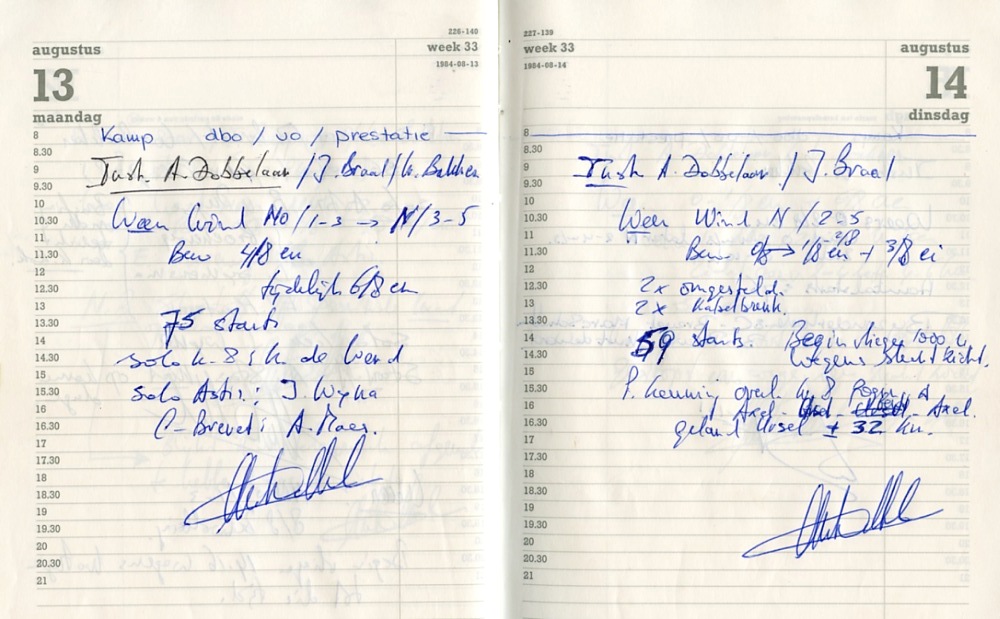 226-140
augustus
week 33
13
1984-08-13
maandag
8
Kamp dbo / vo / prestatie
8.30
9
Instr. A. Dobbelaar / J. Braal / W.
9.30
10
10.30
Weer Wind NO / 1-3 → N / 3-5
11
11.30
Bew 4/8 cu
12
12.30
tijdelijk 6/8 cu
13
13.30
75 starts
14
14.30
solo K-8 : K. de
15
15.30
solo Astir : J.
16
16.30
C-Brevet : A. Maes.
17
17.30
18
18.30
19
19.30
20
20.30
21
227-139
week 33
augustus
1984-08-14
14
dinsdag
8
8.30
9
Instr. A. Dobbelaar / J. Braal
9.30
10
10.30
Weer Wind N / 2-5
11
11.30
Bew 0/8 → 1/8 - 2/8 cu + 3/8 ci
12
12.30
2x omgesteld.
13
2x Kabelbreuk.
13.30
14
59 starts. Begin vliegen 1000 u
14.30
wegens slecht zicht.
15
15.30
P.
16
Axel - Axel.
16.30
geland Ursel ± 32 km.
17
17.30
18
18.30
19
19.30
20
20.30
21